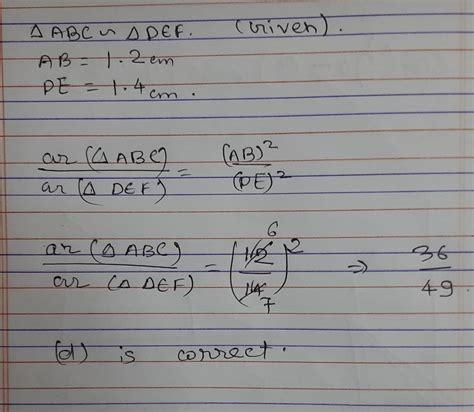 △ ABC ~ △ DEF. (Given).
AB = 1.2 cm
DE = 1.4 cm.
ar (△ ABC) / ar (△ DEF) = (AB)² / (DE)²
ar (△ ABC) / ar (△ DEF) = (12 6 / 14 7)² ⇒ 36 / 49
(d) is correct.